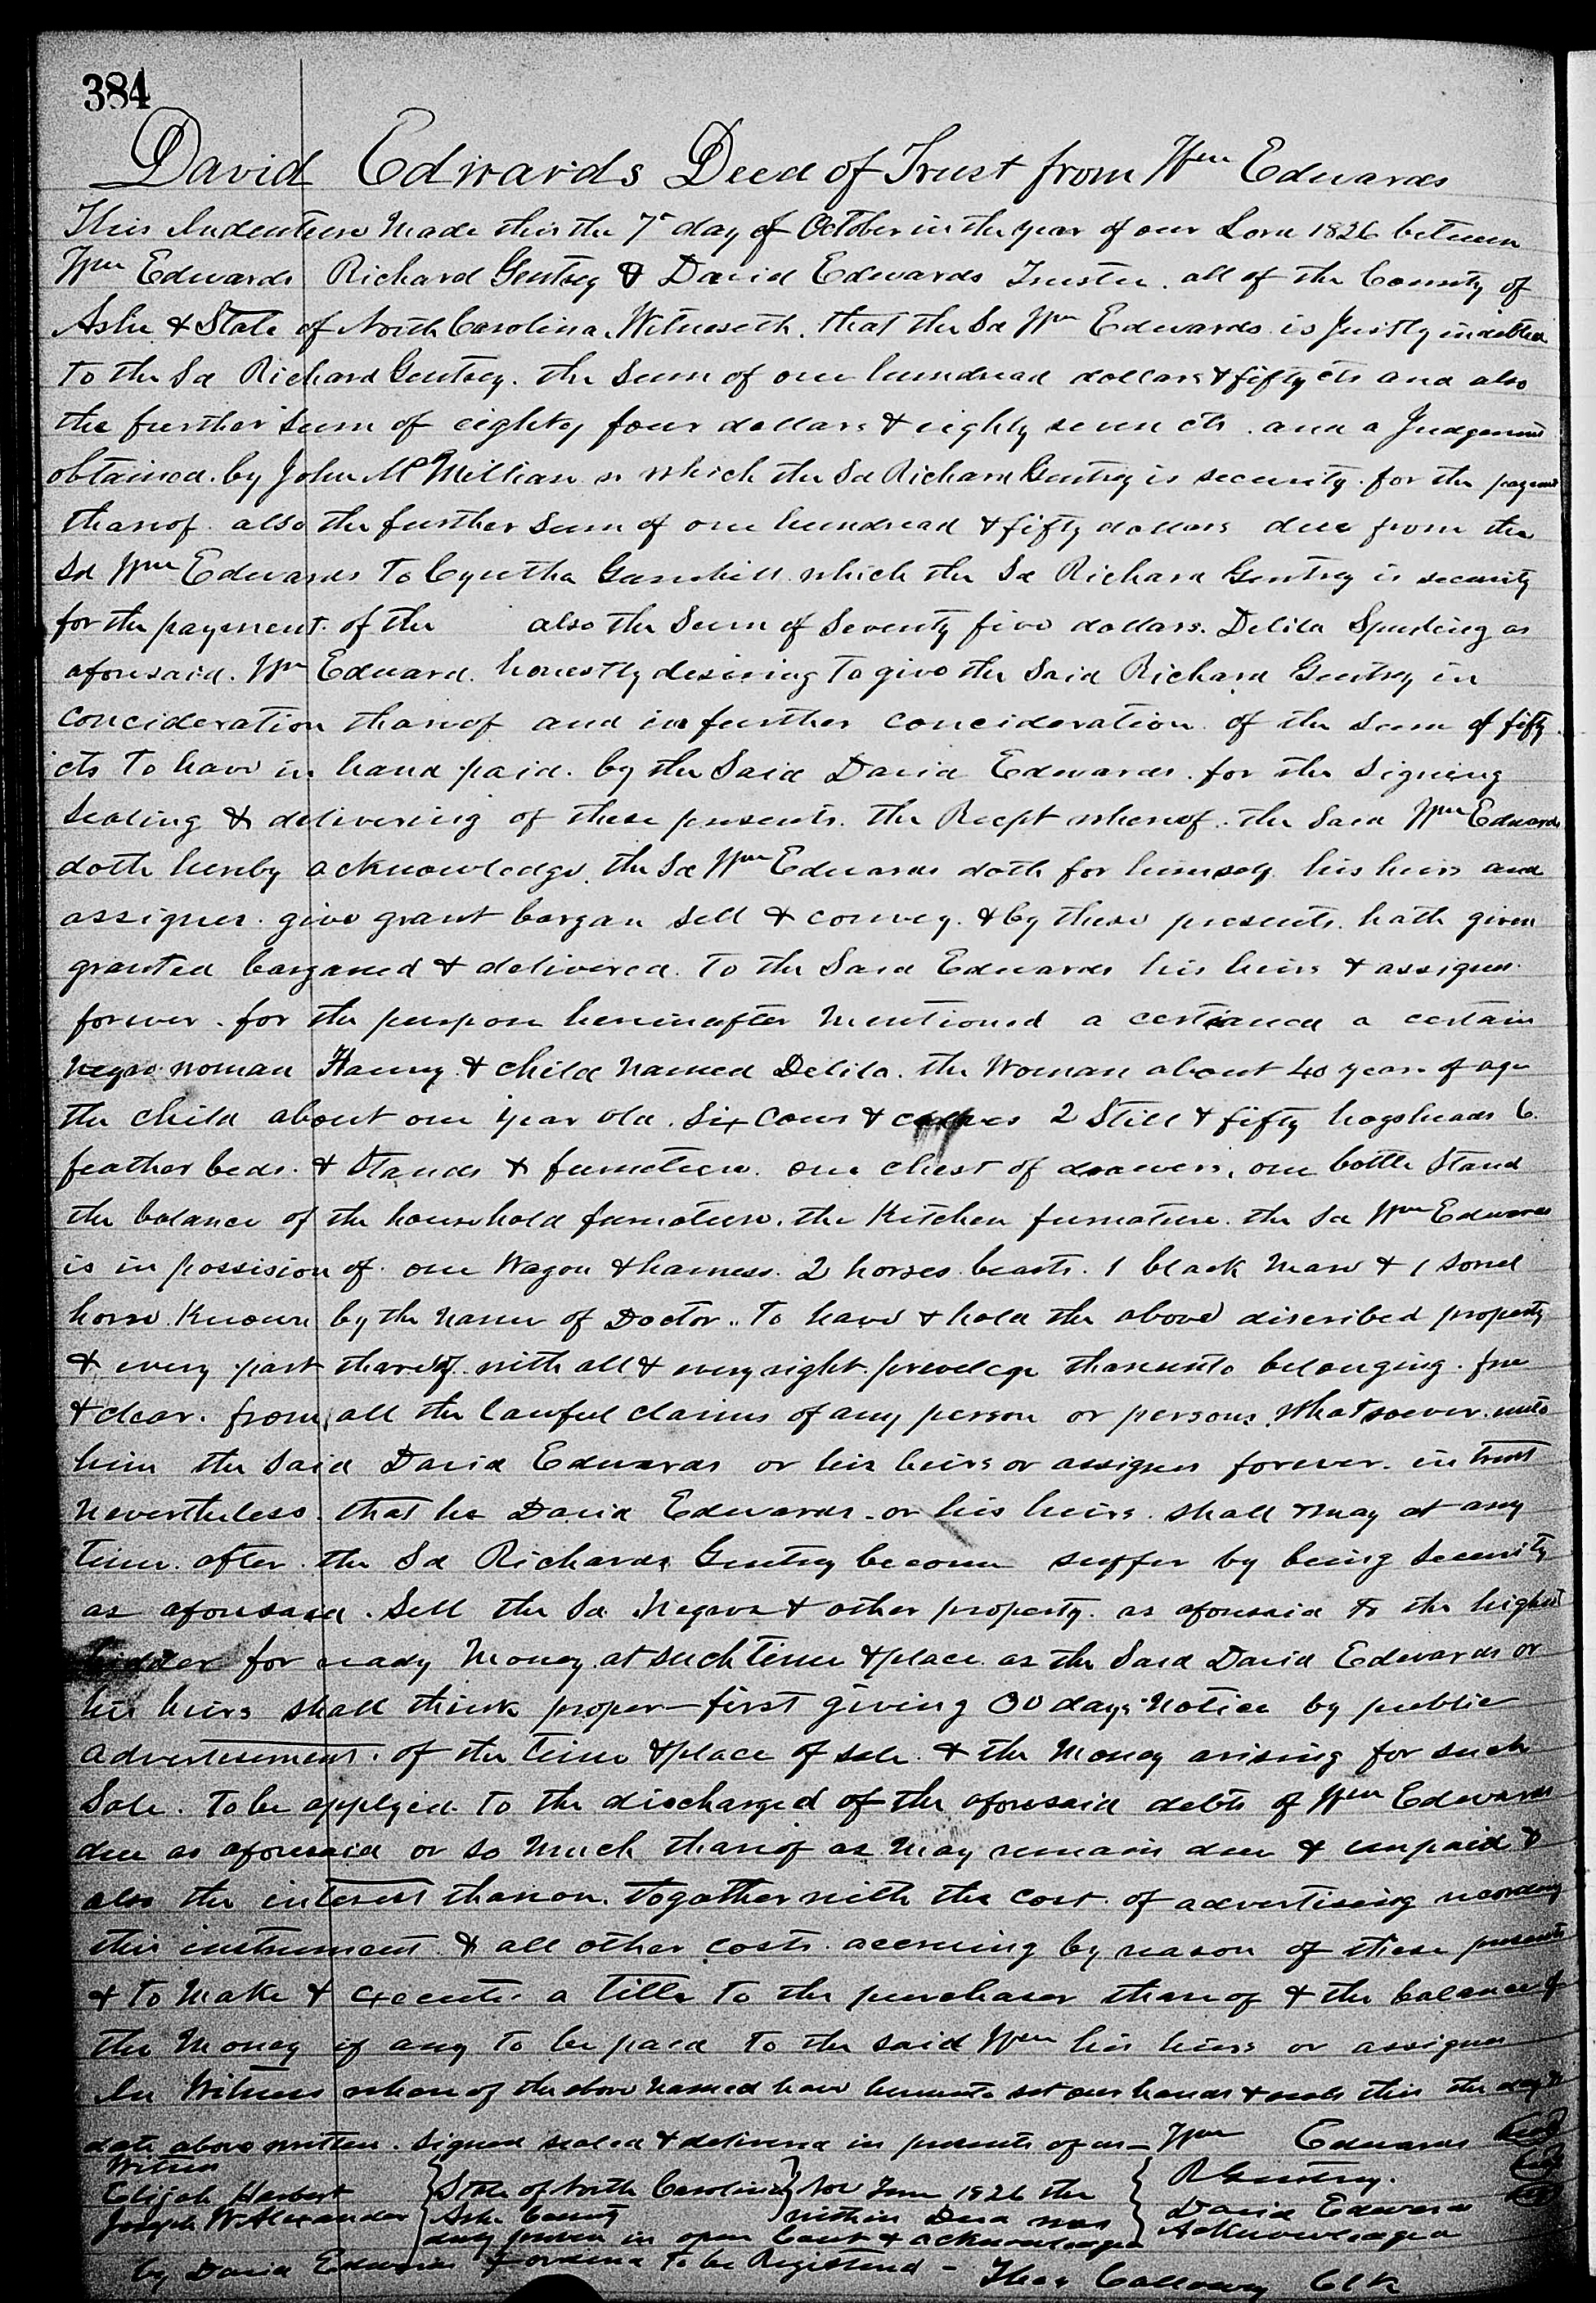 384
David Edwards Deed of Trust from Wm Edwards
This Indenture Made this the 7th day of October in the year of our Lord 1826 between
Wm Edwards Richard Gentrey & David Edwards Trustee. all of the County of
Ashe & State of North Carolina. Witnesseth. that the Sd Wm Edwards is Justly indebted
to the Sd Richard Gentrey. the Sum of one hundread dollars & fifty cts and also
the further Sum of eighty four dollars & eighty seven cts. and a Judgement
obtained. by John McMillian in which the Sd Richard Gentrey is security. for the payment
thareof. also the further Sum of one hundread & fifty dollars due from the
Sd Wm Edwards To Cyntha Gambill which the Sd Richard Gentrey is security
for the payement. of the also the Sum of Seventy five dollars. Delila Spurling as
aforesaid. Wm Edward. honestly desiring to give the Said Richard Gentrey in
concideration thareof and in further concideration. of the Sum of fifty
cts To have in hand paid. by the Said David Edwards. for the Signing
Sealing & delivering of these presents. the Recept whereof. the Said Wm Edwards
doth hereby acknowledge. the Sd Wm Edwards doth for himself his heirs and
assignes. give grant bargan Sell & convey. & by these presents. hath given
granted barganed & delivered. To the Said Edwards his heirs & assignes.
forever. for the purpose hereinafter Mentioned a a certain
Negro woman Fanny & child Named Delila. the Woman about 40 years of age
the child about one year old. Six Cows & calves 2 Still & fifty hogsheads 6.
feather beds. & Stands & furneture. one chest of drawers, one bottle Stand
the balance of the household furnature. the Kitchen furnature. the Sd Wm Edwards
is in possision of. one Wagon & harness. 2 horses beasts. 1 black Mare & 1 Sorrel
horse Known by the Name of Doctor. To have & hold the above discribed property
& every part thareof. with all & every right. prevelege thareunto belonging. free
& clear. from all the lawful claims of any person or persons. Whatsoever. unto
him the Said David Edwards or his heirs or assignes forever. in trust
Nevertheless. that he David Edwards. or his heirs. shall & may at any
time. after. the Sd Richard Gentrey become suffer by being Security
as aforesaid. Sell the Sd Negroes & other property. as aforesaid to the highest
bidder for ready Money. at such time & place as the Said David Edwards or
his heirs shall think proper - first giving 30 days Notice by public
advertisement. of the time & place of sale. & the Money arising for such
Sale. To be applyed. To the discharged of the aforesaid debts of Wm Edwards
due as aforesaid or so Much thareof as May remain due & unpaid &
also the interest thareon. Togather with the cost. of advertising recording
this instrument. & all other costs. accruing by reason of these presents
& to Make & execute. a title to the purchaser thareof & the balance of
the Money if any to be paid to the said Wm his heirs or assignes
In Witness whereof the above Named have hereunto set our hands & seals this the day &
date above written. Signed sealed & delivered in presents of us - Wm Edwards Seal
Witness
Elijah Harbert
Joseph W Alexander
State of North Carolina
Ashe County
Nov Term 1826 the
within Deed was
duly proven in open Court & acknowledged
R Gentrey. Seal
David Edwards Seal
Acknowledged
by David Edwards & ordered To be Registered - Thos Calloway Clk